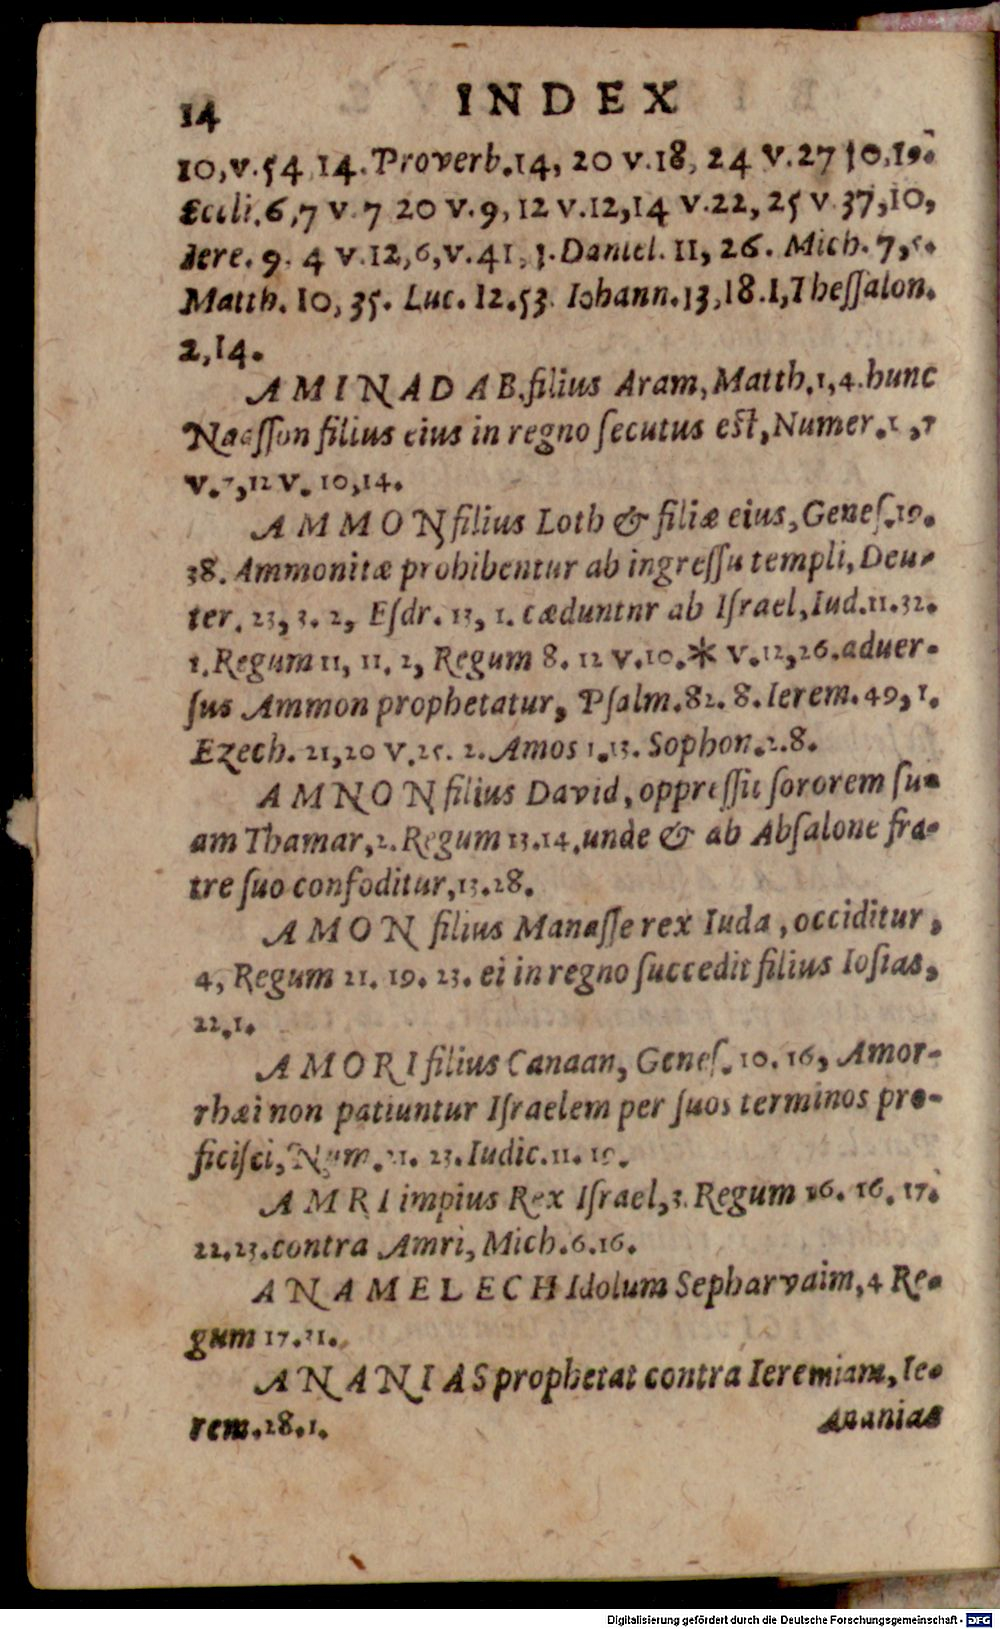 14 INDEX
10,v.54 14. Proverb.14, 20 v.18, 24 v.27 30,19.
Eccli.6,7 v. 7 20 v.9, 12 v.12,14 v.22, 25 v 37,10,
Iere. 9. 4 v.12,6,v.41, 3. Daniel. 11, 26. Mich. 7,5.
Matth. 10, 35. Luc. 12.53. Iohann.13,18.1,Thessalon.
2,14.
AMINADAB.filius Aram,Matth.1,4.hunc
Naasson filius eius in regno secutus est,Numer.1,7
v.7,12 v. 10,14.
AMMON filius Loth & filiæ eius,Genes.19.
38. Ammonitæ prohibentur ab ingressu templi, Deu-
ter. 23, 3. 2, Esdr. 13, 1. cæduntnr ab Israel,Iud.11.32.
1.Regum 11, 11. 2, Regum 8. 12 v.10.* v.12,26.aduer-
sus Ammon prophetatur, Psalm.82. 8. Ierem. 49, 1.
Ezech. 21,20 v.25. 2. Amos 1.13. Sophon.2.8.
AMNON filius David, oppressit sororem su-
am Thamar,2. Regum 13.14.unde & ab Absalone fra-
tre suo confoditur,13.28.
AMON filius Manasse rex Iuda, occiditur,
4, Regum 21. 19. 23. ei in regno succedit filius Iosias,
22.1.
AMORI filius Canaan, Genes. 10. 16, Amor-
rhæi non patiuntur Israelem per suos terminos pro-
ficisci, Num. 21. 23. Iudic.11. 19.
AMRI impius Rex Israel,3. Regum 16. 16. 17.
22.23.contra Amri, Mich.6.16.
ANAMELECH Idolum Sepharvaim,4 Re-
gum 17.31.
ANANIAS prophetat contra Ieremiam, Ie-
rem.28.1.
Ananias
Digitalisierung gefördert durch die Deutsche Forschungsgemeinschaft - DFG